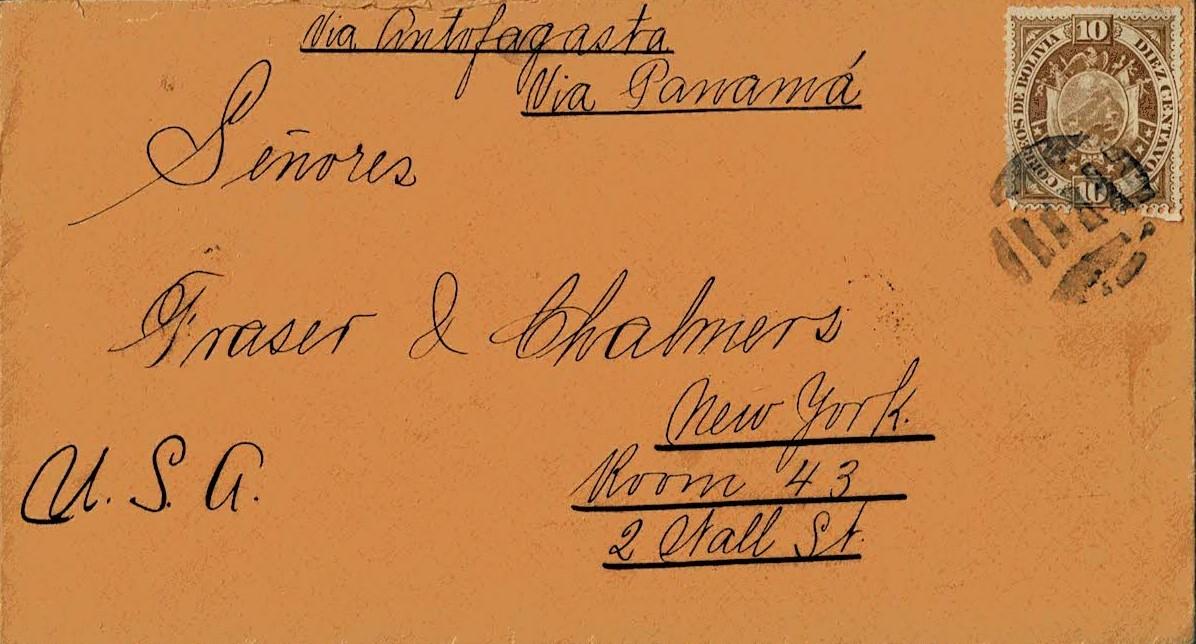 Via Antofagasta
Via Panamá
Señores
Fraser & Chalmers
New York.
Room 43
2 Wall St.
U. S. A.
10
CORREOS DE BOLIVIA
DIEZ CENTAVOS
10